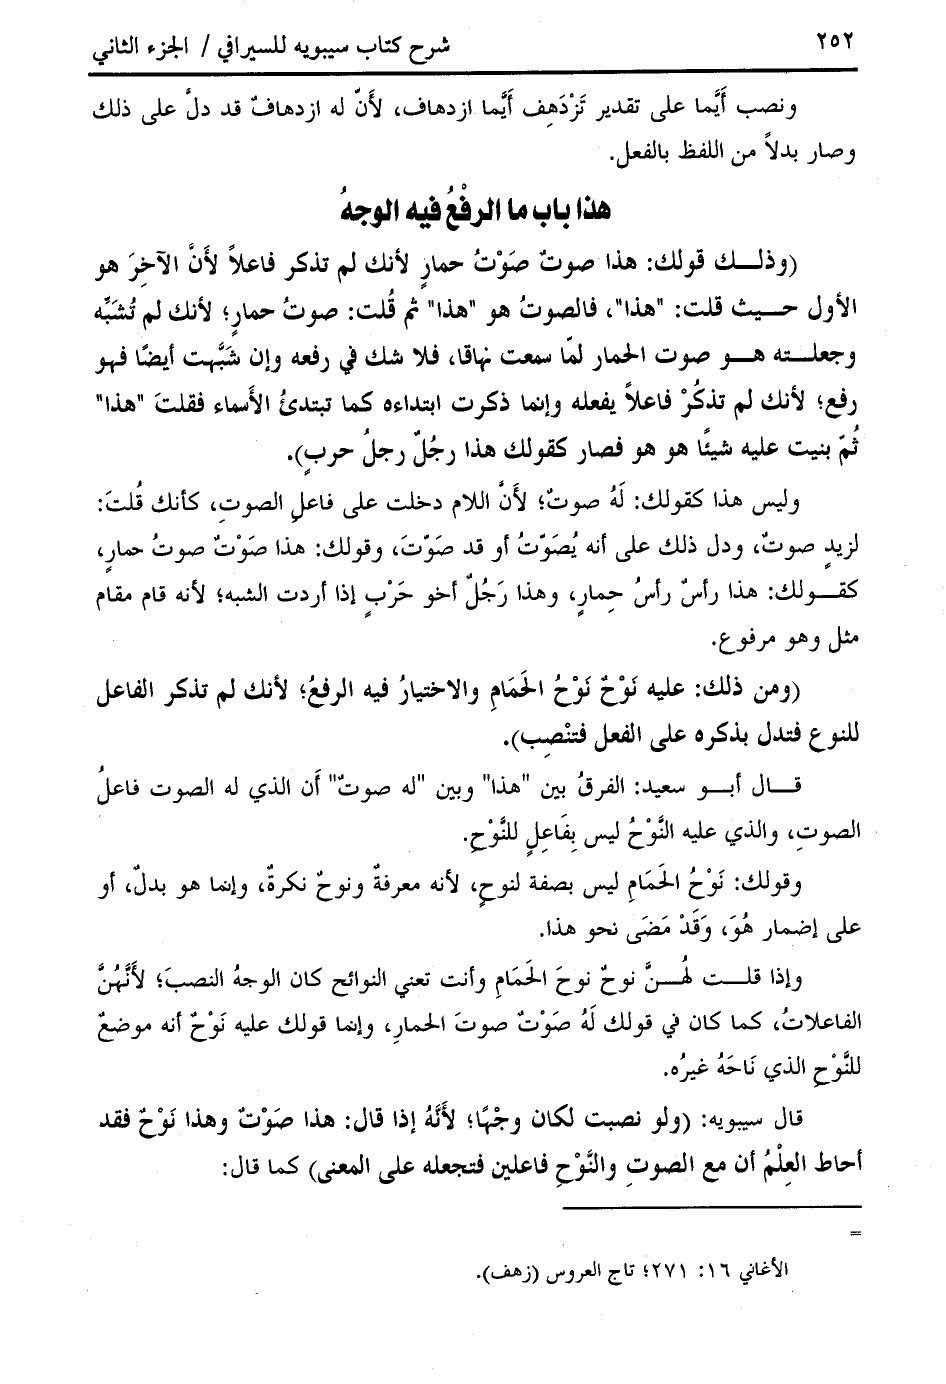 ٢٥٢
شرح كتاب سيبويه للسيرافي / الجزء الثاني
ونصب أَيَّما على تقدير تَزْدَهِف أَيَّما ازدهاف، لأَنّ له ازدهافٌ قد دلَّ على ذلك
وصار بدلاً من اللفظ بالفعل.
هذا باب ما الرفْعُ فيه الوجهُ
(وذلك قولك: هذا صوتٌ صَوْتُ حمارٍ لأنك لم تذكر فاعلاً لأَنَّ الآخِرَ هو
الأول حيث قلت: "هذا"، فالصوتُ هو "هذا" ثم قُلت: صوتُ حمارٍ؛ لأنك لم تُشَبِّه
وجعلته هو صوت الحمار لمّا سمعت نهاقا، فلا شك في رفعه وإن شَبَّهت أيضًا فهو
رفع؛ لأنك لم تذكُرْ فاعلاً يفعله وإنما ذكرت ابتداءه كما تبتدئُ الأَسماء فقلتَ "هذا"
ثُمّ بنيت عليه شيئًا هو هو فصار كقولك هذا رجُلٌ رجلُ حربٍ).
وليس هذا كقولك: لَهُ صوتٌ؛ لأَنَّ اللام دخلت على فاعلِ الصوتِ، كأنك قُلتَ:
لزيدٍ صوتٌ، ودل ذلك على أنه يُصَوّتُ أو قد صَوّتَ، وقولك: هذا صَوْتٌ صوتُ حمارٍ،
كقولك: هذا رأسٌ رأسُ حِمارٍ، وهذا رَجُلٌ أخو حَرْبٍ إذا أردت الشبه؛ لأنه قام مقام
مثل وهو مرفوع.
(ومن ذلك: عليه نَوْحٌ نَوْحُ الحَمَامِ والاختيارُ فيه الرفعُ؛ لأنك لم تذكر الفاعل
للنوع فتدل بذكره على الفعل فتنْصِب).
قال أبو سعيد: الفرقُ بين "هذا" وبين "له صوتٌ" أن الذي له الصوت فاعلُ
الصوتِ، والذي عليه النَّوْحُ ليس بِفَاعِلٍ للنَّوْحِ.
وقولك: نَوْحُ الحَمَامِ ليس بصفة لنوحٍ، لأنه معرفةٌ ونوحٌ نكرةٌ، وإنما هو بدلٌ، أو
على إضمار هُوَ، وَقَدْ مَضَى نحو هذا.
وإذا قلت لهُنَّ نوحٌ نوحَ الحَمَامِ وأنت تعني النوائح كان الوجهُ النصبَ؛ لأَنَّهُنَّ
الفاعلاتُ، كما كان في قولك لَهُ صَوْتٌ صوتَ الحمارِ، وإنما قولك عليه نَوْحٌ أنه موضعٌ
للنَّوْحِ الذي نَاحَهُ غيرُه.
قال سيبويه: (ولو نصبت لكان وجْهًا؛ لأَنَّهُ إذا قال: هذا صَوْتٌ وهذا نَوْحٌ فقد
أحاط العِلْمُ أن مع الصوتِ والنَّوْحِ فاعلين فتجعله على المعنى) كما قال:
=
الأغاني ١٦: ٢٧١؛ تاج العروس (زهف).